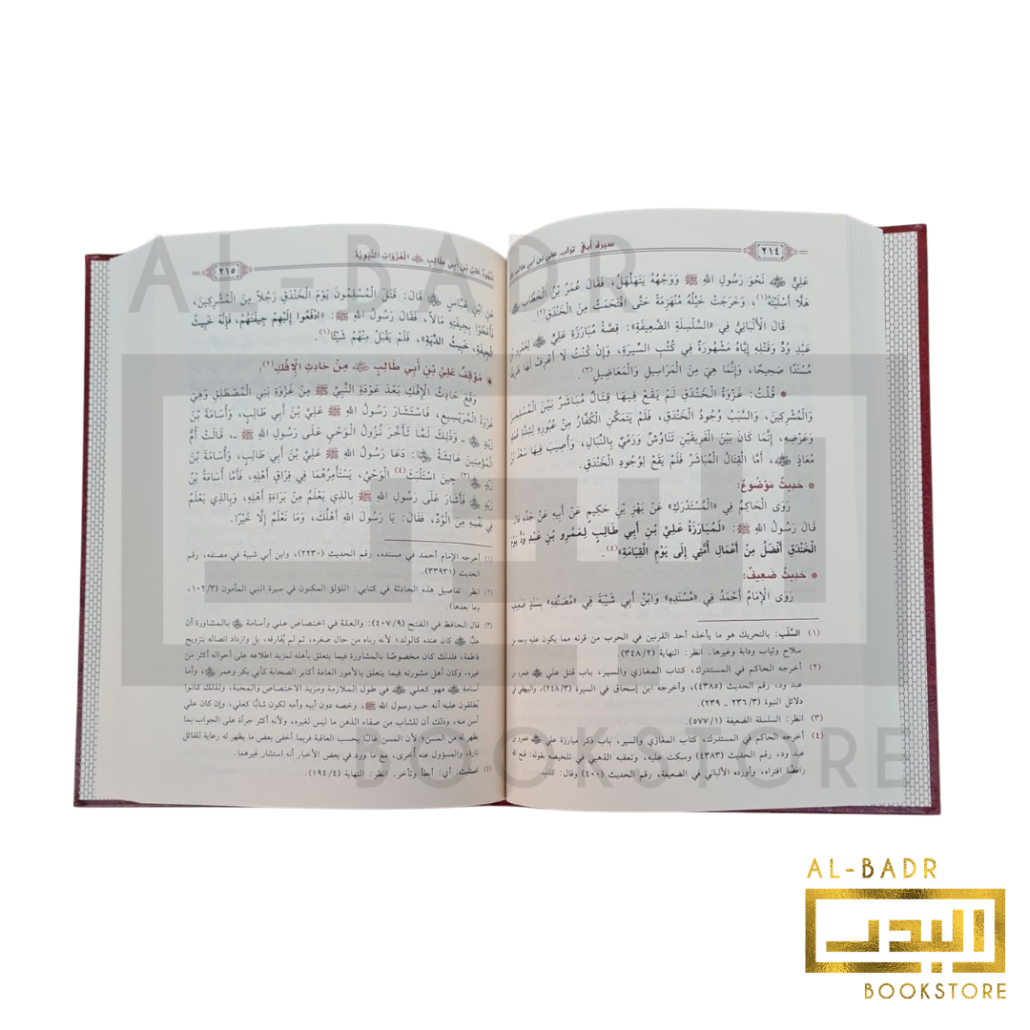 ٢١٤
سيرة أبي تراب علي بن أبي طالب
عَلِيٌّ نَحْوَ رَسُولِ اللهِ ﷺ وَوَجْهُهُ يَتَهَلَّلُ، فَقَالَ عُمَرُ بْنُ الْخَطَّابِ
هَلَّا أَسْلَبْتَهُ(١)، وَخَرَجَتْ خَيْلُهُ مُنْهَزِمَةً حَتَّى اقْتَحَمَتْ مِنَ الْخَنْدَقِ(٢).
قَالَ الْأَلْبَانِيُّ فِي «السِّلْسِلَةِ الضَّعِيفَةِ»: قِصَّةُ مُبَارَزَةِ عَلِيٍّ لِعَمْرِو بْنِ
عَبْدِ وُدٍّ وَقَتْلِهِ إِيَّاهُ مَشْهُورَةٌ فِي كُتُبِ السِّيرَةِ، وَإِنْ كُنْتُ لَا أَعْرِفُ لَهَا طَرِيقًا
مُسْنَدًا صَحِيحًا، وَإِنَّمَا هِيَ مِنَ الْمَرَاسِيلِ وَالْمَعَاضِيلِ(٣).
• قُلْتُ: غَزْوَةُ الْخَنْدَقِ لَمْ يَقَعْ فِيهَا قِتَالٌ مُبَاشَرٌ بَيْنَ الْمُسْلِمِينَ
وَالْمُشْرِكِينَ، وَالسَّبَبُ وُجُودُ الْخَنْدَقِ، فَلَمْ يَتَمَكَّنِ الْكُفَّارُ مِنْ عُبُورِهِ لِشِدَّةِ عُمْقِهِ
وَعَرْضِهِ، إِنَّمَا كَانَ بَيْنَ الْفَرِيقَيْنِ تَنَاوُشٌ وَرَمْيٌ بِالنِّبَالِ، وَأُصِيبَ فِيهَا سَعْدُ بْنُ
مُعَاذٍ ، أَمَّا الْقِتَالُ الْمُبَاشَرُ فَلَمْ يَقَعْ لِوُجُودِ الْخَنْدَقِ.
• حَدِيثٌ مَوْضُوعٌ:
رَوَى الْحَاكِمُ فِي «الْمُسْتَدْرَكِ» عَنْ بَهْزِ بْنِ حَكِيمٍ عَنْ أَبِيهِ عَنْ جَدِّهِ قَالَ:
قَالَ رَسُولُ اللهِ ﷺ: «لَمُبَارَزَةُ عَلِيِّ بْنِ أَبِي طَالِبٍ لِعَمْرِو بْنِ عَبْدِ وُدٍّ يَوْمَ
الْخَنْدَقِ أَفْضَلُ مِنْ أَعْمَالِ أُمَّتِي إِلَى يَوْمِ الْقِيَامَةِ»(٤).
• حَدِيثٌ ضَعِيفٌ:
رَوَى الْإِمَامُ أَحْمَدُ فِي «مُسْنَدِهِ» وَابْنُ أَبِي شَيْبَةَ فِي «مُصَنَّفِهِ» بِسَنَدٍ ضَعِيفٍ
(١) السَّلَب: بالتحريك هو ما يأخذه أحد القرنين في الحرب من قرنه مما يكون عليه ومعه من
سلاح وثياب ودابة وغيرها. انظر: النهاية (٣٤٨/٢).
(٢) أخرجه الحاكم في المستدرك، كتاب المغازي والسير، باب قتل علي عمرو بن
عبد ود، رقم الحديث (٤٣٨٥)، وأخرجه ابن إسحاق في السيرة (٢٤٨/٣)، والبيهقي في
دلائل النبوة (٢٣٦/٣ ـ ٢٣٩).
(٣) انظر: السلسلة الضعيفة (٥٧٧/١).
(٤) أخرجه الحاكم في المستدرك، كتاب المغازي والسير، باب ذكر مبارزة علي عمرو بن
عبد ود، رقم الحديث (٤٣٨٣) وسكت عليه، وتعقبه الذهبي في تلخيصه بقوله: قبح الله
رافضيًا افتراه، وأورده الألباني في الضعيفة، رقم الحديث (٤٠٠) وقال: كذب.
علي بن أبي طالب الْغَزَوَاتِ النَّبَوِيَّةَ
٢١٥
عَنِ ابْنِ عَبَّاسٍ قَالَ: قَتَلَ الْمُسْلِمُونَ يَوْمَ الْخَنْدَقِ رَجُلًا مِنَ الْمُشْرِكِينَ،
فَأَعْطَوْا بِجِيفَتِهِ مَالًا، فَقَالَ رَسُولُ اللهِ ﷺ: «ادْفَعُوا إِلَيْهِمْ جِيفَتَهُمْ، فَإِنَّهُ خَبِيثُ
الْجِيفَةِ، خَبِيثُ الدِّيَةِ»، فَلَمْ يَقْبَلْ مِنْهُمْ شَيْئًا(١).
• مَوْقِفُ عَلِيِّ بْنِ أَبِي طَالِبٍ مِنْ حَادِثِ الْإِفْكِ(٢).
وَقَعَ حَادِثُ الْإِفْكِ بَعْدَ عَوْدَةِ النَّبِيِّ ﷺ مِنْ غَزْوَةِ بَنِي الْمُصْطَلِقِ وَهِيَ
غَزْوَةُ الْمُرَيْسِيعِ، فَاسْتَشَارَ رَسُولُ اللهِ ﷺ عَلِيَّ بْنَ أَبِي طَالِبٍ، وَأُسَامَةَ بْنَ
زَيْدٍ ـ وَذَلِكَ لَمَّا تَأَخَّرَ نُزُولُ الْوَحْيِ عَلَى رَسُولِ اللهِ ﷺ ـ، قَالَتْ أُمُّ
الْمُؤْمِنِينَ عَائِشَةُ : دَعَا رَسُولُ اللهِ ﷺ عَلِيَّ بْنَ أَبِي طَالِبٍ، وَأُسَامَةَ بْنَ
زَيْدٍ (٣) حِينَ اسْتَلْبَثَ(٤) الْوَحْيُ، يَسْتَأْمِرُهُمَا فِي فِرَاقِ أَهْلِهِ، فَأَمَّا أُسَامَةُ بْنُ
زَيْدٍ فَأَشَارَ عَلَى رَسُولِ اللهِ ﷺ بِالَّذِي يَعْلَمُ مِنْ بَرَاءَةِ أَهْلِهِ، وَبِالَّذِي يَعْلَمُ
فِي نَفْسِهِ مِنَ الْوُدِّ، فَقَالَ: يَا رَسُولَ اللهِ أَهْلُكَ، وَمَا نَعْلَمُ إِلَّا خَيْرًا.
(١) أخرجه الإمام أحمد في مسنده، رقم الحديث (٢٢٣٠)، وابن أبي شيبة في مصنفه، رقم
الحديث (٣٣٩٣١).
(٢) انظر: تفاصيل هذه الحادثة في كتابي: اللؤلؤ المكنون في سيرة النبي المأمون (١٠٢/٣،
وما بعدها).
(٣) قال الحافظ في الفتح (٤٠٧/٩): والعلة في اختصاص علي وأسامة بالمشاورة أن
عليًّا كان عنده كالولد؛ لأنه رباه من حال صغره، ثم لم يُفارقه، بل وازداد اتصاله بتزويج
فاطمة، فلذلك كان مخصوصًا بالمشاورة فيما يتعلق بأهله لمزيد اطلاعه على أحواله أكثر من
غيره، وكان أهل مشورته فيما يتعلق بالأمور العامة أكابر الصحابة كأبي بكر وعمر ، وأما
أسامة فهو كعلي في طول الملازمة ومزيد الاختصاص والمحبة، ولذلك كانوا
يُطلقون عليه أنه حب رسول الله ﷺ، وخصه دون أبيه وأمه لكون شابًّا كعلي، وإن كان علي
أسن منه، وذلك أن للشاب من صفاء الذهن ما ليس لغيره، ولأنه أكثر جرأة على الجواب بما
يظهر له من المسن؛ لأن المسن غالبًا يحسب العاقبة فربما أخفى بعض ما يظهر له رعاية للقائل
تارة، والمسؤول عنه أخرى، مع ما ورد في بعض الأخبار أنه استشار غيرهما.
(٤) استلبث: أي: أبطأ وتأخر. انظر: النهاية (١٩٤/٤).
AL-BADR
BOOKSTORE
AL-BADR
البدر
BOOKSTORE